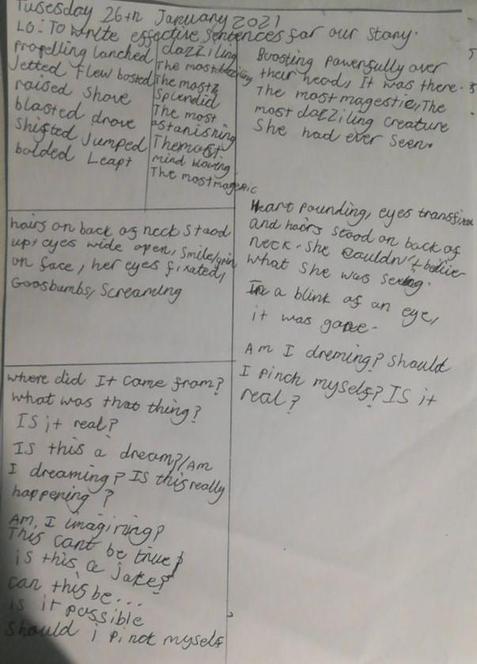 Tuesesday 26th January 2021
LO: To write effective sentences for our story.
Propelling lanched
Jetted flew bosted
raised shove
blasted drove
Shifted Jumped
bolded Leapt
dazziling
The most
The most
Splendid
The most
astanishing
The most
mind blowing
The most magestic
Boosting powerfully over
their head, It was there.
The most magestic, The
most dazziling creature
She had ever seen.
hairs on back of neck stood
up, eyes wide open, smile/grin
on face, her eyes fixated,
Goosbumbs, Screaming
Heart pounding, eyes transfixed
and hairs stood on back of
neck. She couldn't belive
what she was seeing.
In a blink of an eye,
it was gone.
Am I dreming? Should
I pinch myself? IS it
real?
where did It came from?
what was that thing?
IS it real?
IS this a dream?/Am
I dreaming? IS this really
happening?
Am I imagining?
This cant be true?
is this a joke?
can this be...
is it possible
should i pinch myself